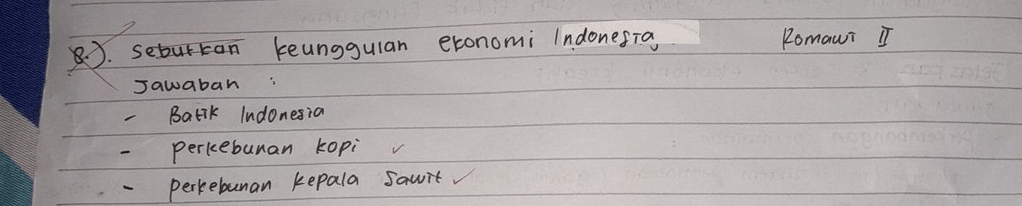 8.). Sebutkan keunggulan ekonomi Indonesia Romawi II
Jawaban :
- Batik Indonesia
- perkebunan kopi ✓
- perkebunan kepala sawit ✓